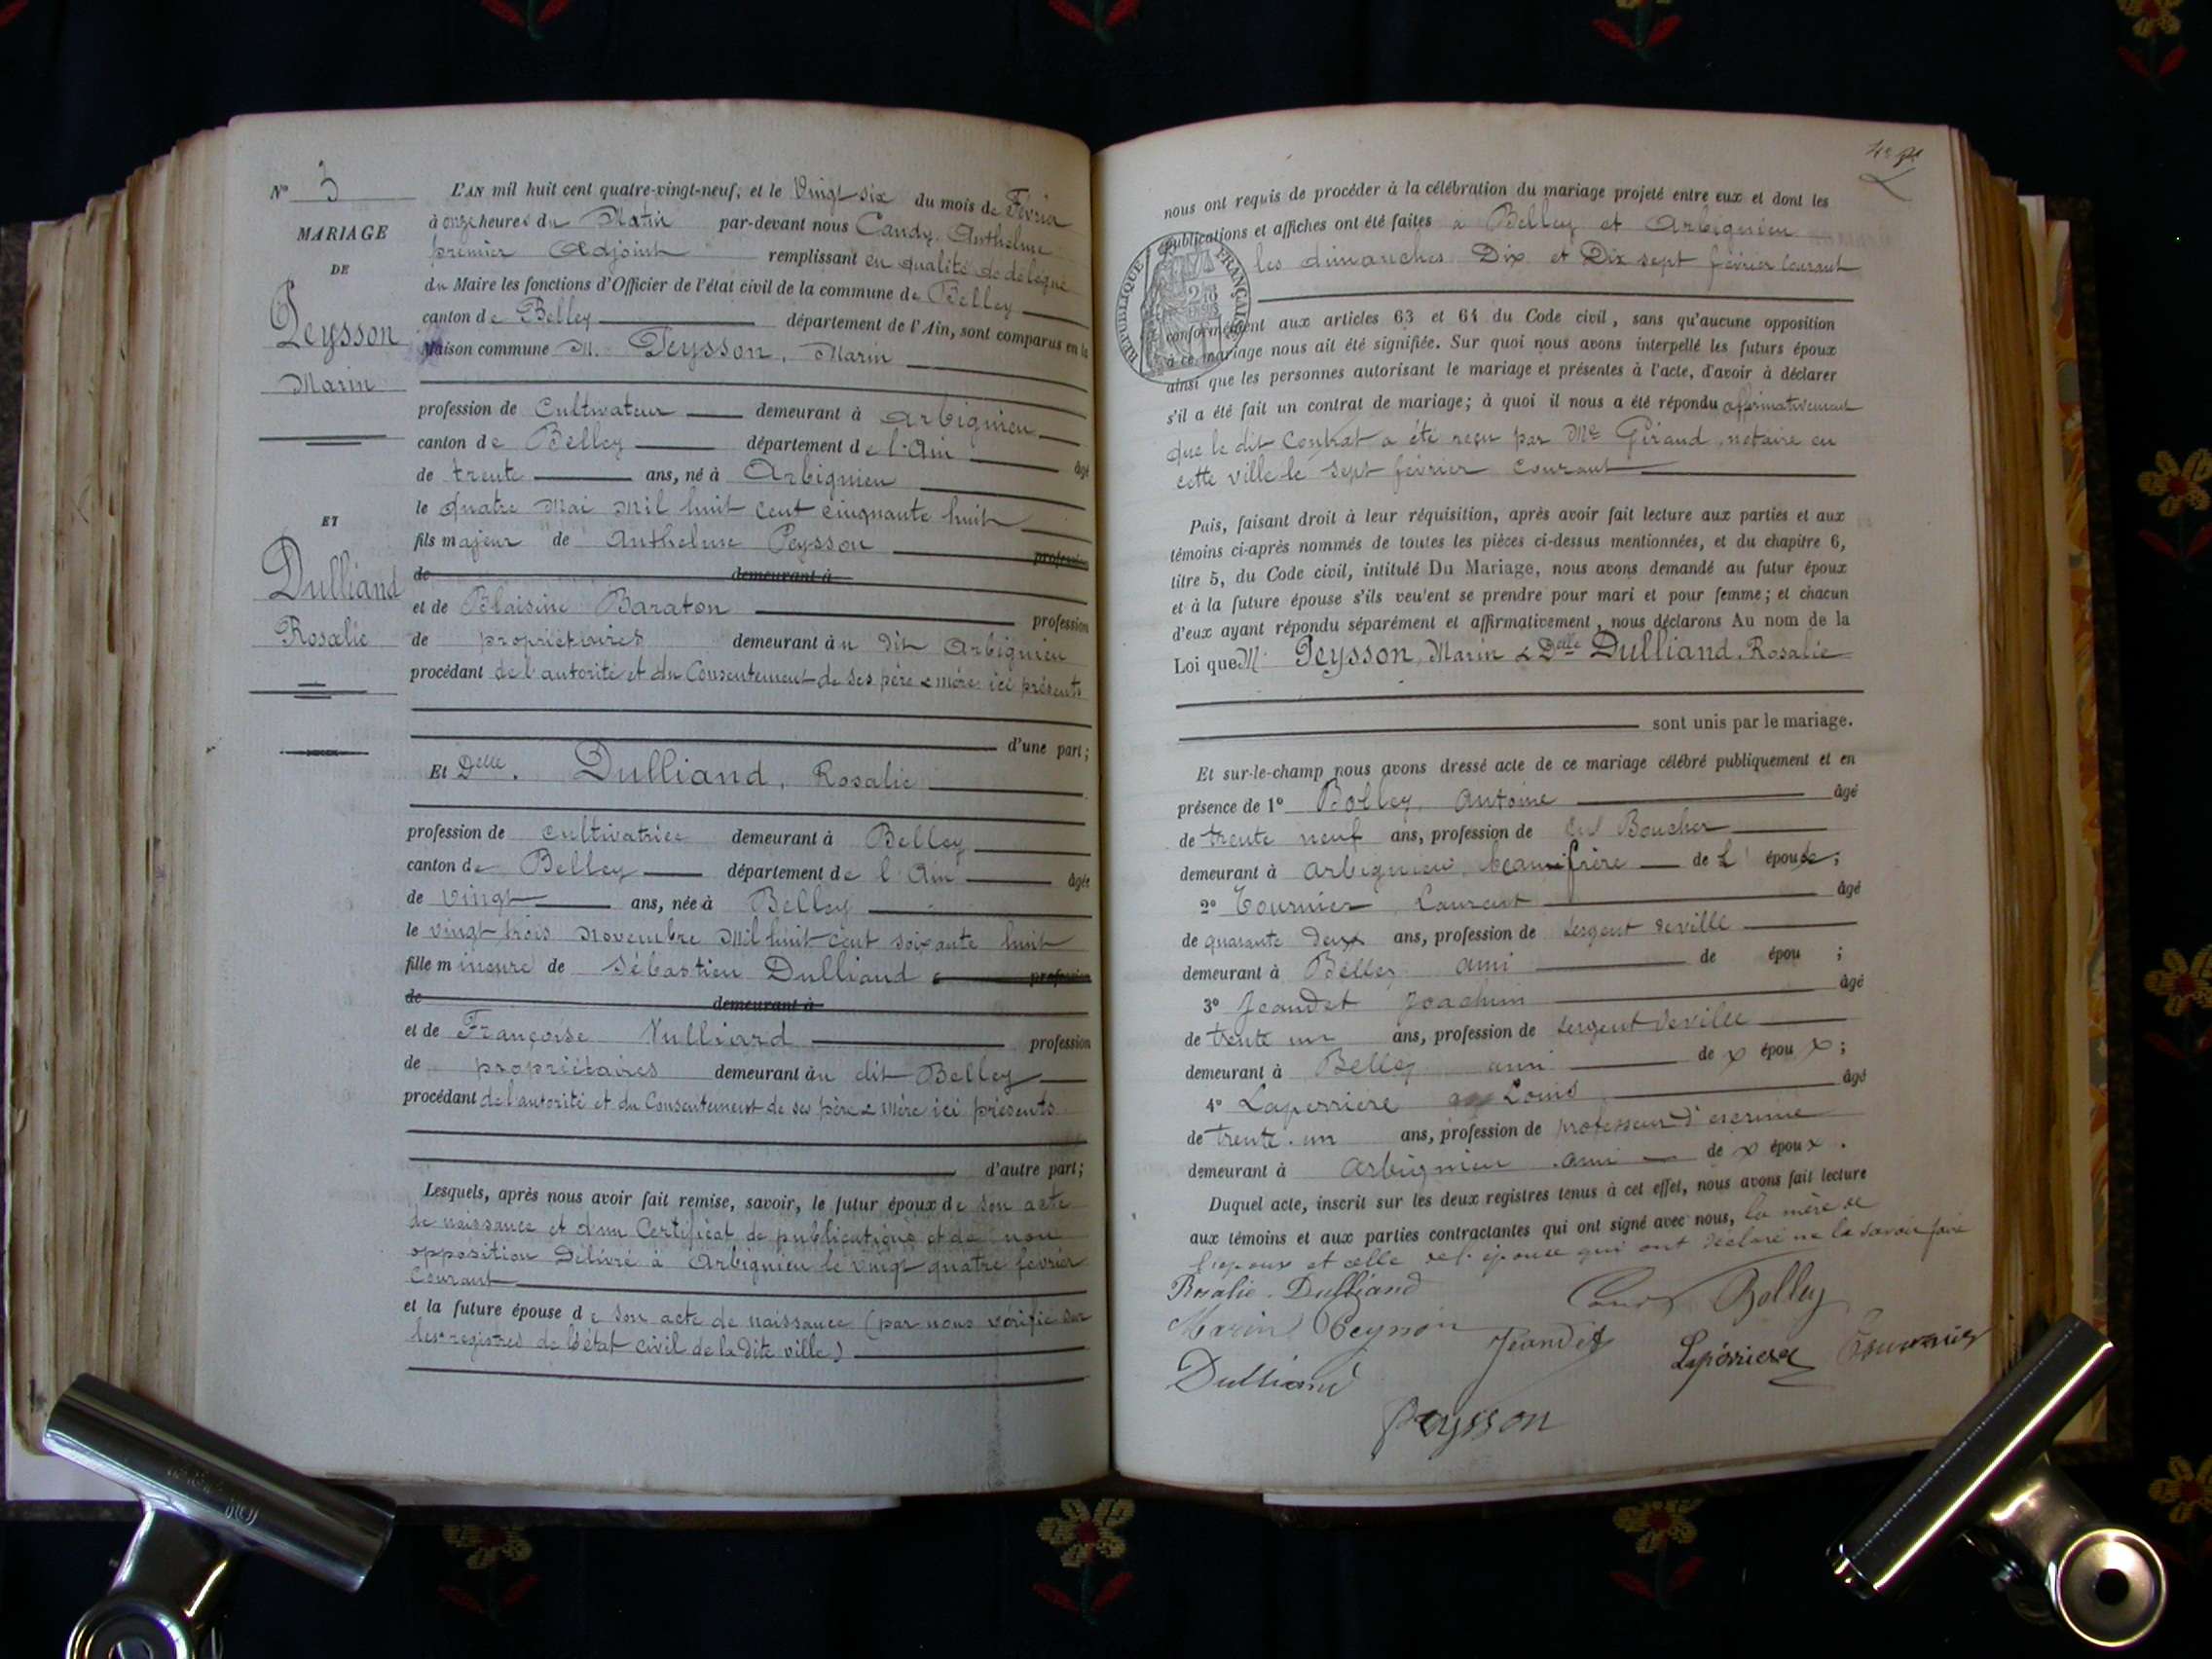 N° 3
MARIAGE
DE
Peysson
Marin
ET
Dulliand
Rosalie
L'AN mil huit cent quatre-vingt-neuf, et le Vingt six du mois de Février
à onze heures du Matin par-devant nous Candy, Anthelme
premier Adjoint remplissant en qualité de délégué
du Maire les fonctions d'Officier de l'état civil de la commune de Belley
canton de Belley département de l'Ain, sont comparus en la
Maison commune M. Peysson, Marin
profession de Cultivateur demeurant à Arbignieu
canton de Belley département de l'Ain âgé
de trente ans, né à Arbignieu
le quatre Mai Mil huit cent cinquante huit
fils majeur de Anthelme Peysson profession
de demeurant à
et de Blaisine Baraton profession
de propriétaires demeurant au dit Arbignieu
procédant de l'autorité et du Consentement de ses père & mère ici présents
d'une part;
Et Delle. Dulliand, Rosalie
profession de cultivatrice demeurant à Belley
canton de Belley département de l'Ain âgée
de vingt ans, née à Belley
le vingt trois Novembre Mil huit cent soixante huit
fille mineure de Sébastien Dulliand profession
de demeurant à
et de Françoise Vulliard profession
de propriétaires demeurant au dit Belley
procédant de l'autorité et du Consentement de ses père & Mère ici présents
d'autre part;
Lesquels, après nous avoir fait remise, savoir, le futur époux de son acte
de naissance et d'un Certificat de publications et de non
opposition Délivré à Arbignieu le vingt quatre février
Courant
et la future épouse de son acte de naissance (par nous vérifié sur
les registres de l'état civil de la dite ville)
nous ont requis de procéder à la célébration du mariage projeté entre eux et dont les
publications et affiches ont été faites à Belley et Arbignieu
les dimanches Dix et Dix sept février courant
RÉPUBLIQUE FRANÇAISE
conformément aux articles 63 et 64 du Code civil, sans qu'aucune opposition
à ce mariage nous ait été signifiée. Sur quoi nous avons interpellé les futurs époux
ainsi que les personnes autorisant le mariage et présentes à l'acte, d'avoir à déclarer
s'il a été fait un contrat de mariage; à quoi il nous a été répondu affirmativement
que le dit Contrat a été reçu par Me Giraud, notaire en
cette ville le sept février courant
Puis, faisant droit à leur réquisition, après avoir fait lecture aux parties et aux
témoins ci-après nommés de toutes les pièces ci-dessus mentionnées, et du chapitre 6,
titre 5, du Code civil, intitulé Du Mariage, nous avons demandé au futur époux
et à la future épouse s'ils veulent se prendre pour mari et pour femme; et chacun
d'eux ayant répondu séparément et affirmativement, nous déclarons Au nom de la
Loi que M. Peysson, Marin & Delle Dulliand, Rosalie
sont unis par le mariage.
Et sur-le-champ nous avons dressé acte de ce mariage célébré publiquement et en
présence de 1° Bolley, Antoine âgé
de trente neuf ans, profession de Boucher
demeurant à Arbignieu, beau frère de l' épouse;
2° Tournier Laurent âgé
de quarante deux ans, profession de sergent de ville
demeurant à Belley ami de épou ;
3° Jeandet Joachim âgé
de trente un ans, profession de sergent de ville
demeurant à Belley ami de x époux;
4° Laperriere Louis âgé
de trente-un ans, profession de professeur d'escrime
demeurant à Arbignieu ami de x époux.
Duquel acte, inscrit sur les deux registres tenus à cet effet, nous avons fait lecture
aux témoins et aux parties contractantes qui ont signé avec nous, la mère de
l'époux et celle de l'épouse qui ont déclaré ne le savoir faire
Rosalie Dulliand Bolley
Marin Peysson Jeandet Laperriere Tournier
Dulliand
Peysson